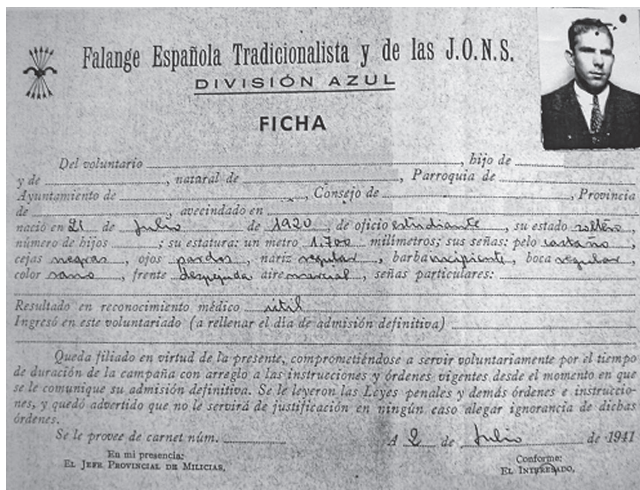 Falange Española Tradicionalista y de las J.O.N.S.
DIVISIÓN AZUL
FICHA
Del voluntario , hijo de
y de , natural de , Parroquia de
Ayuntamiento de , Consejo de , Provincia
de , avecindado en
nació en 21 de Julio de 1920, de oficio estudiante, su estado soltero,
número de hijos ; su estatura: un metro 1.700 milímetros; sus señas: pelo castaño
cejas negras, ojos pardos, nariz regular, barba incipiente, boca regular,
color sano, frente despejada aire marcial, señas particulares:
Resultado en reconocimiento médico útil
Ingresó en este voluntariado (a rellenar el día de admisión definitiva)
Queda filiado en virtud de la presente, comprometiéndose a servir voluntariamente por el tiempo
de duración de la campaña con arreglo a las instrucciones y órdenes vigentes desde el momento en que
se le comunique su admisión definitiva. Se le leyeron las Leyes penales y demás órdenes e instruccio-
nes, y quedó advertido que no le servirá de justificación en ningún caso alegar ignorancia de dichas
órdenes.
Se le provee de carnet núm. A 2 de Julio de 1941
En mi presencia: Conforme:
EL JEFE PROVINCIAL DE MILICIAS, EL INTERESADO,